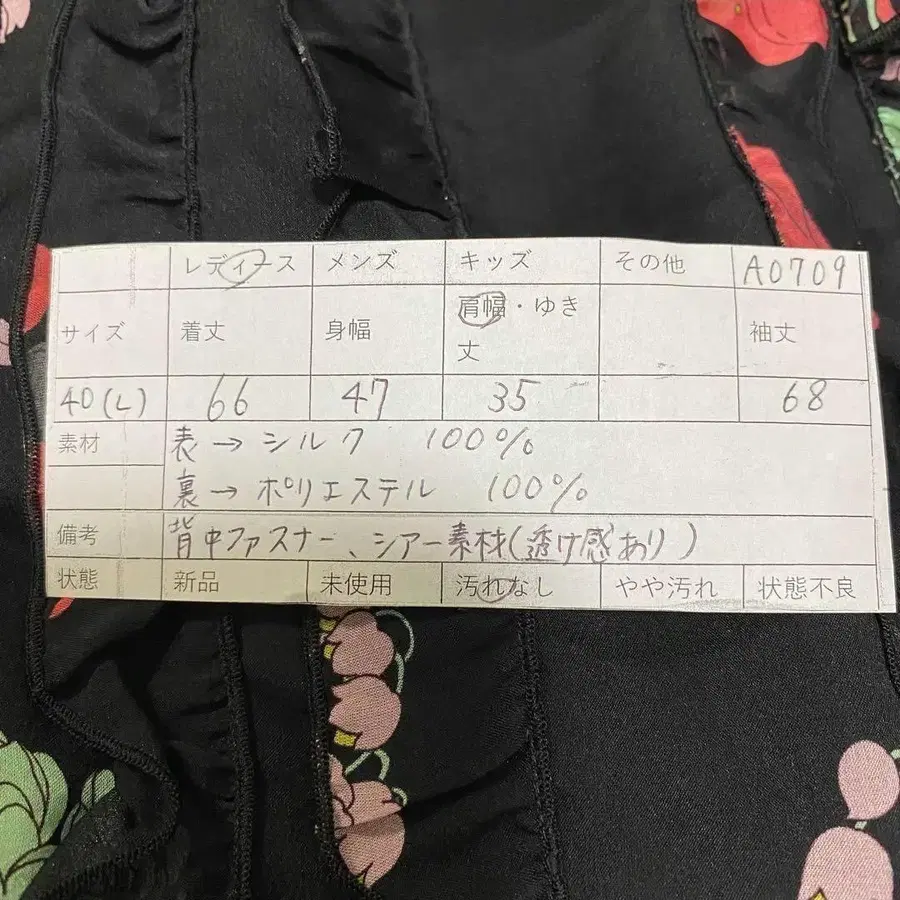 レディース メンズ キッズ その他 A0709
サイズ 着丈 身幅 肩幅・ゆき丈 袖丈
40(L) 66 47 35 68
素材 表→シルク 100%
裏→ポリエステル 100%
備考 背中ファスナー、シアー素材(透け感あり)
状態 新品 未使用 汚れなし やや汚れ 状態不良